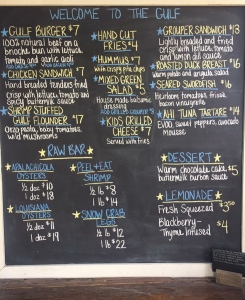 WELCOME TO THE GULF
GULF BURGER $7
100% natural beef on a
brioche bun with lettuce,
tomato and garlic aioli
CHICKEN SANDWICH $7
Hand breaded tenders fried
Crisp with lettuce, tomato and
Spicy buttermilk sauce
SHRIMP STUFFED
GULF FLOUNDER $17
Orzo pasta, baby tomatoes,
wild mushrooms
HAND CUT
FRIES $4
HUMMUS $7
with crispy pita chips
MIXED GREEN
SALAD $5
House made balsamic
dressing
KIDS GRILLED
CHEESE $7
Served with fries
GROUPER SANDWICH $13
Lightly breaded and fried
crisp with lettuce, tomato
and lemon aioli
ROASTED DUCK BREAST $16
Warm potato and arugula salad
SEARED SWORDFISH $16
Heirloom tomatoes, frisee,
bacon vinaigrette
AHI TUNA TARTARE $14
sweet peppers, avocado
mousse
RAW BAR
APALACHICOLA
OYSTERS
1/2 doz $10
1 doz $18
LOUISIANA
OYSTERS
1/2 doz $11
1 doz $19
PEEL + EAT
SHRIMP
1/2 lb $8
1 lb $14
SNOW CRAB
LEGS
1/2 lb $12
1 lb $22
DESSERT
Warm chocolate cake $5
buttermilk bourbon sauce
LEMONADE
Fresh Squeezed $3.50
Blackberry-
Thyme Infused $4